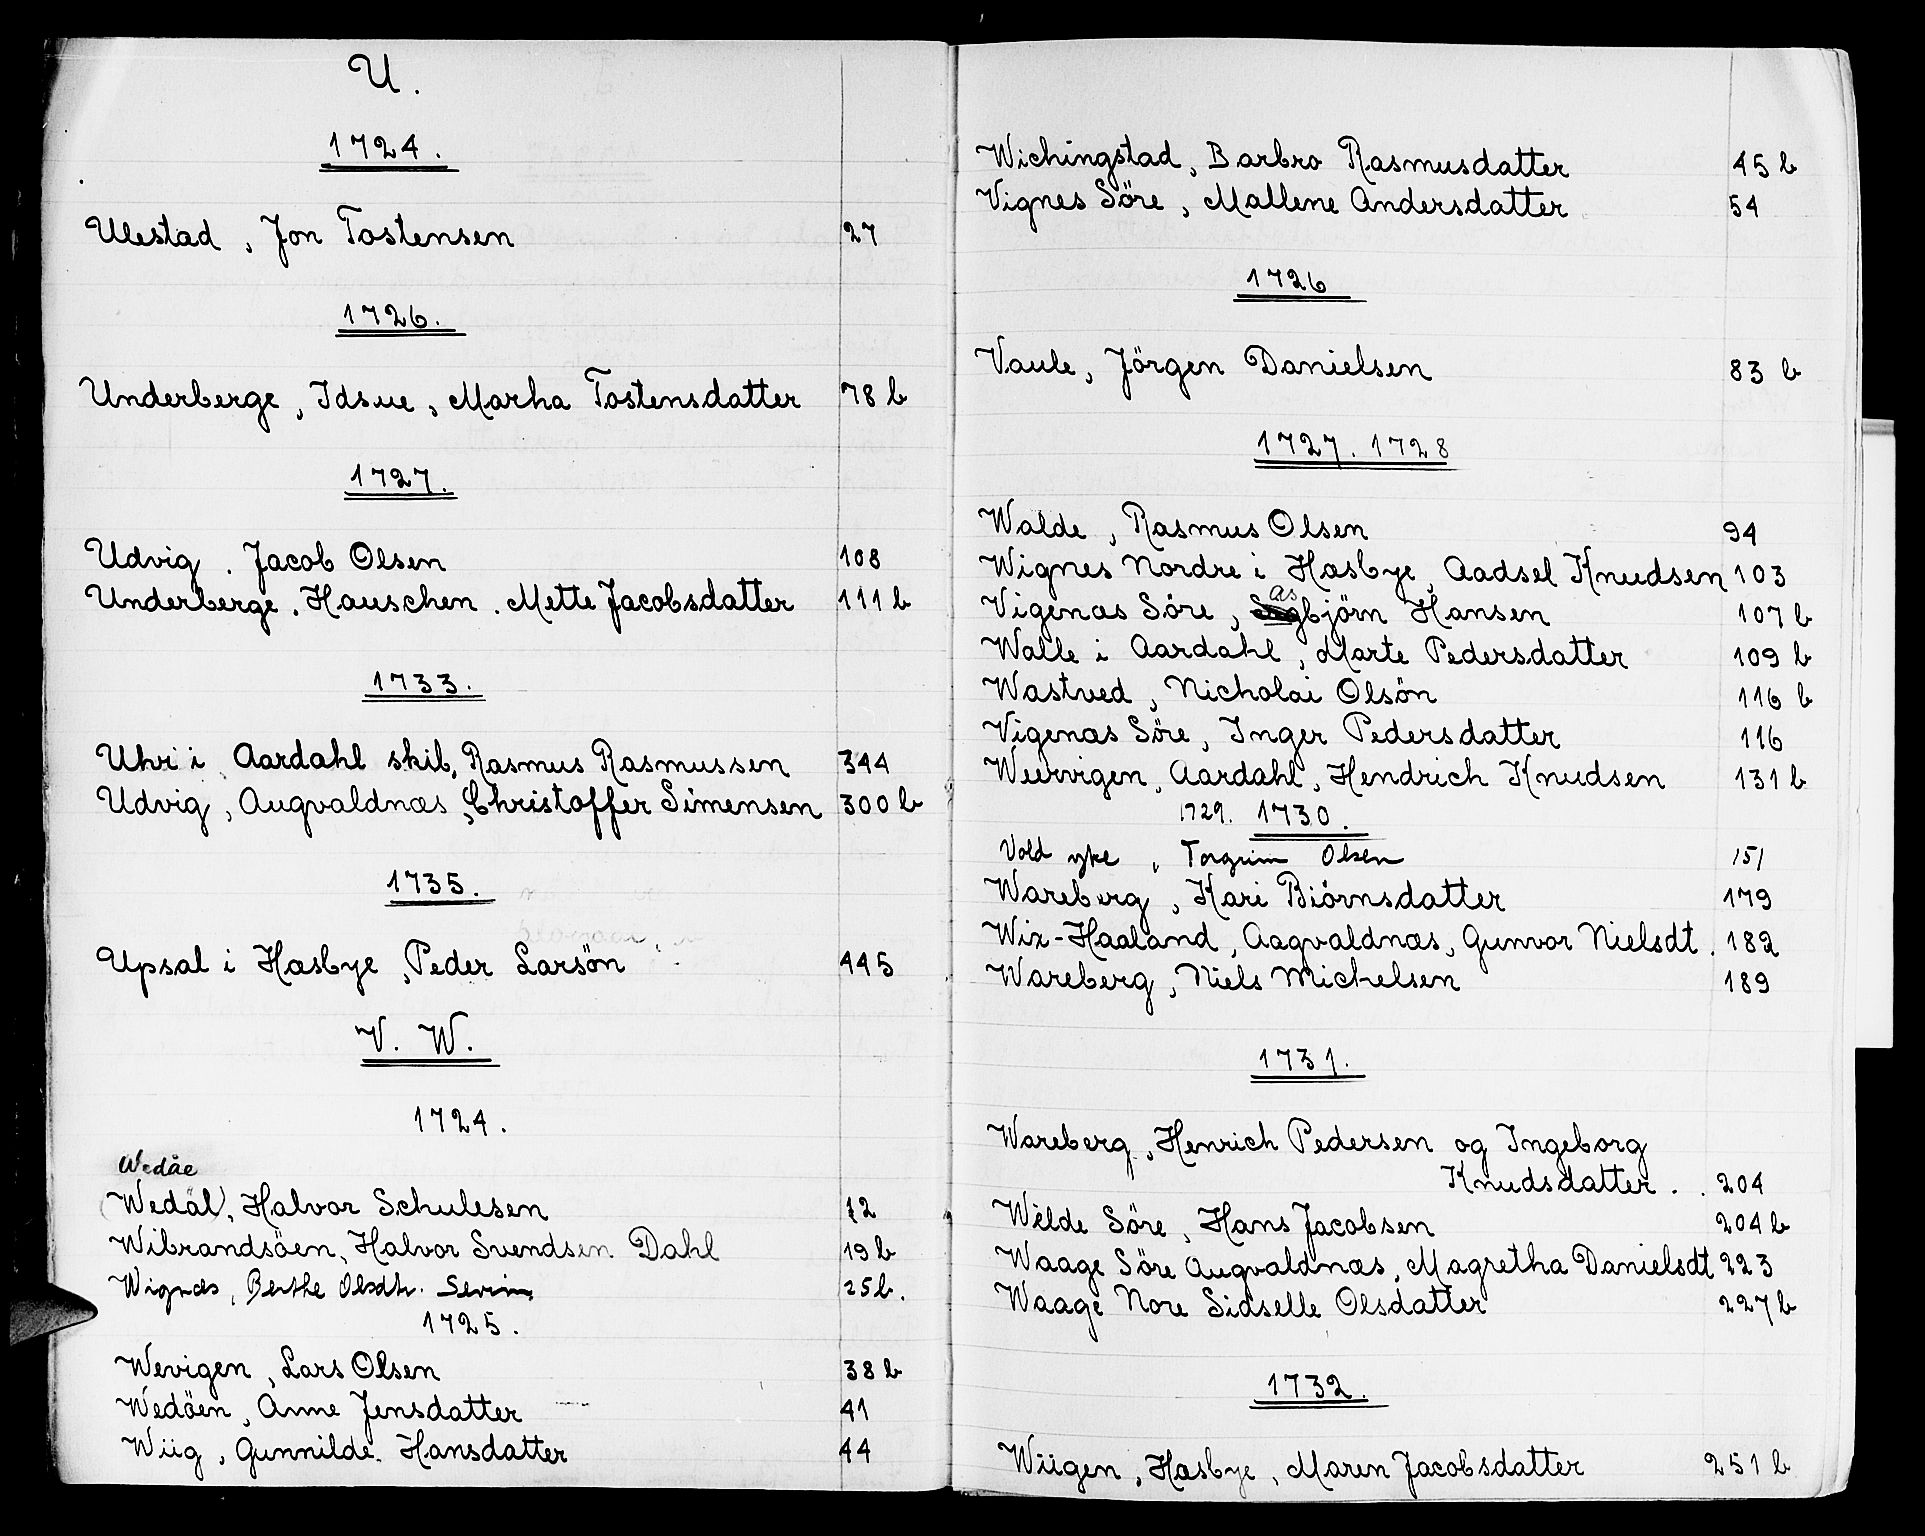 U.
1724.
Ulestad, Jon Tostensen 27
1726.
Underberge, Idsue, Marha Tostensdatter 78 b
1727.
Udvig. Jacob Olsen 108
Underberge. Hauschen. Mette Jacobsdatter 111 b
1733.
Uhr i Aardahl skib, Rasmus Rasmussen 344
Udvig, Augvaldnæs, Christoffer Simensen 300 b
1735.
Upsal i Hæsbye, Peder Larsön 445
V. W.
1724.
Wedåe
(Wedäl), Halvor Schulesen 12
Wibrandsöen, Halvor Svendsen Dahl 19 b
Wignæs, Berthe Olsdtr. Severin 25 b.
1725.
Wevigen, Lars Olsen 38 b
Wedöen, Anne Jensdatter 41
Wiig, Gunnilde Hansdatter 44
Wichingstad, Barbro Rasmusdatter 45 b
Vignes Söre, Mallene Andersdatter 54
1726
Vaule, Jörgen Danielsen 83 b
1727. 1728
Walde, Rasmus Olsen 94
Wignes Nordre i Hæsbye, Aadsel Knudsen 103
as
Vigenæs Söre, björn Hansen 107 b
Walle i Aardahl, Marte Pedersdatter 109 b
Wastved, Nicholai Olsön 116 b
Vigenæs Söre, Inger Pedersdatter 116
Weervigen, Aardahl, Hendrich Knudsen 131 b
1729. 1730.
Vold yke, Torgrim Olsen 151
Wareberg, Kari Biörnsdatter 179
Wix-Haaland, Aagvaldnæs, Gunvor Nielsdt. 182
Wareberg, Niels Michelsen 189
1731.
Wareberg, Henrich Pedersen og Ingeborg
Knudsdatter . . 204
Wilde Söre, Hans Jacobsen 204 b
Waage Söre Augvaldnæs, Magretha Danielsdt 223
Waage Nore Sidselle Olsdatter 227 b
1732.
Wiigen, Hæsbye, Maren Jacobsdatter 251 b